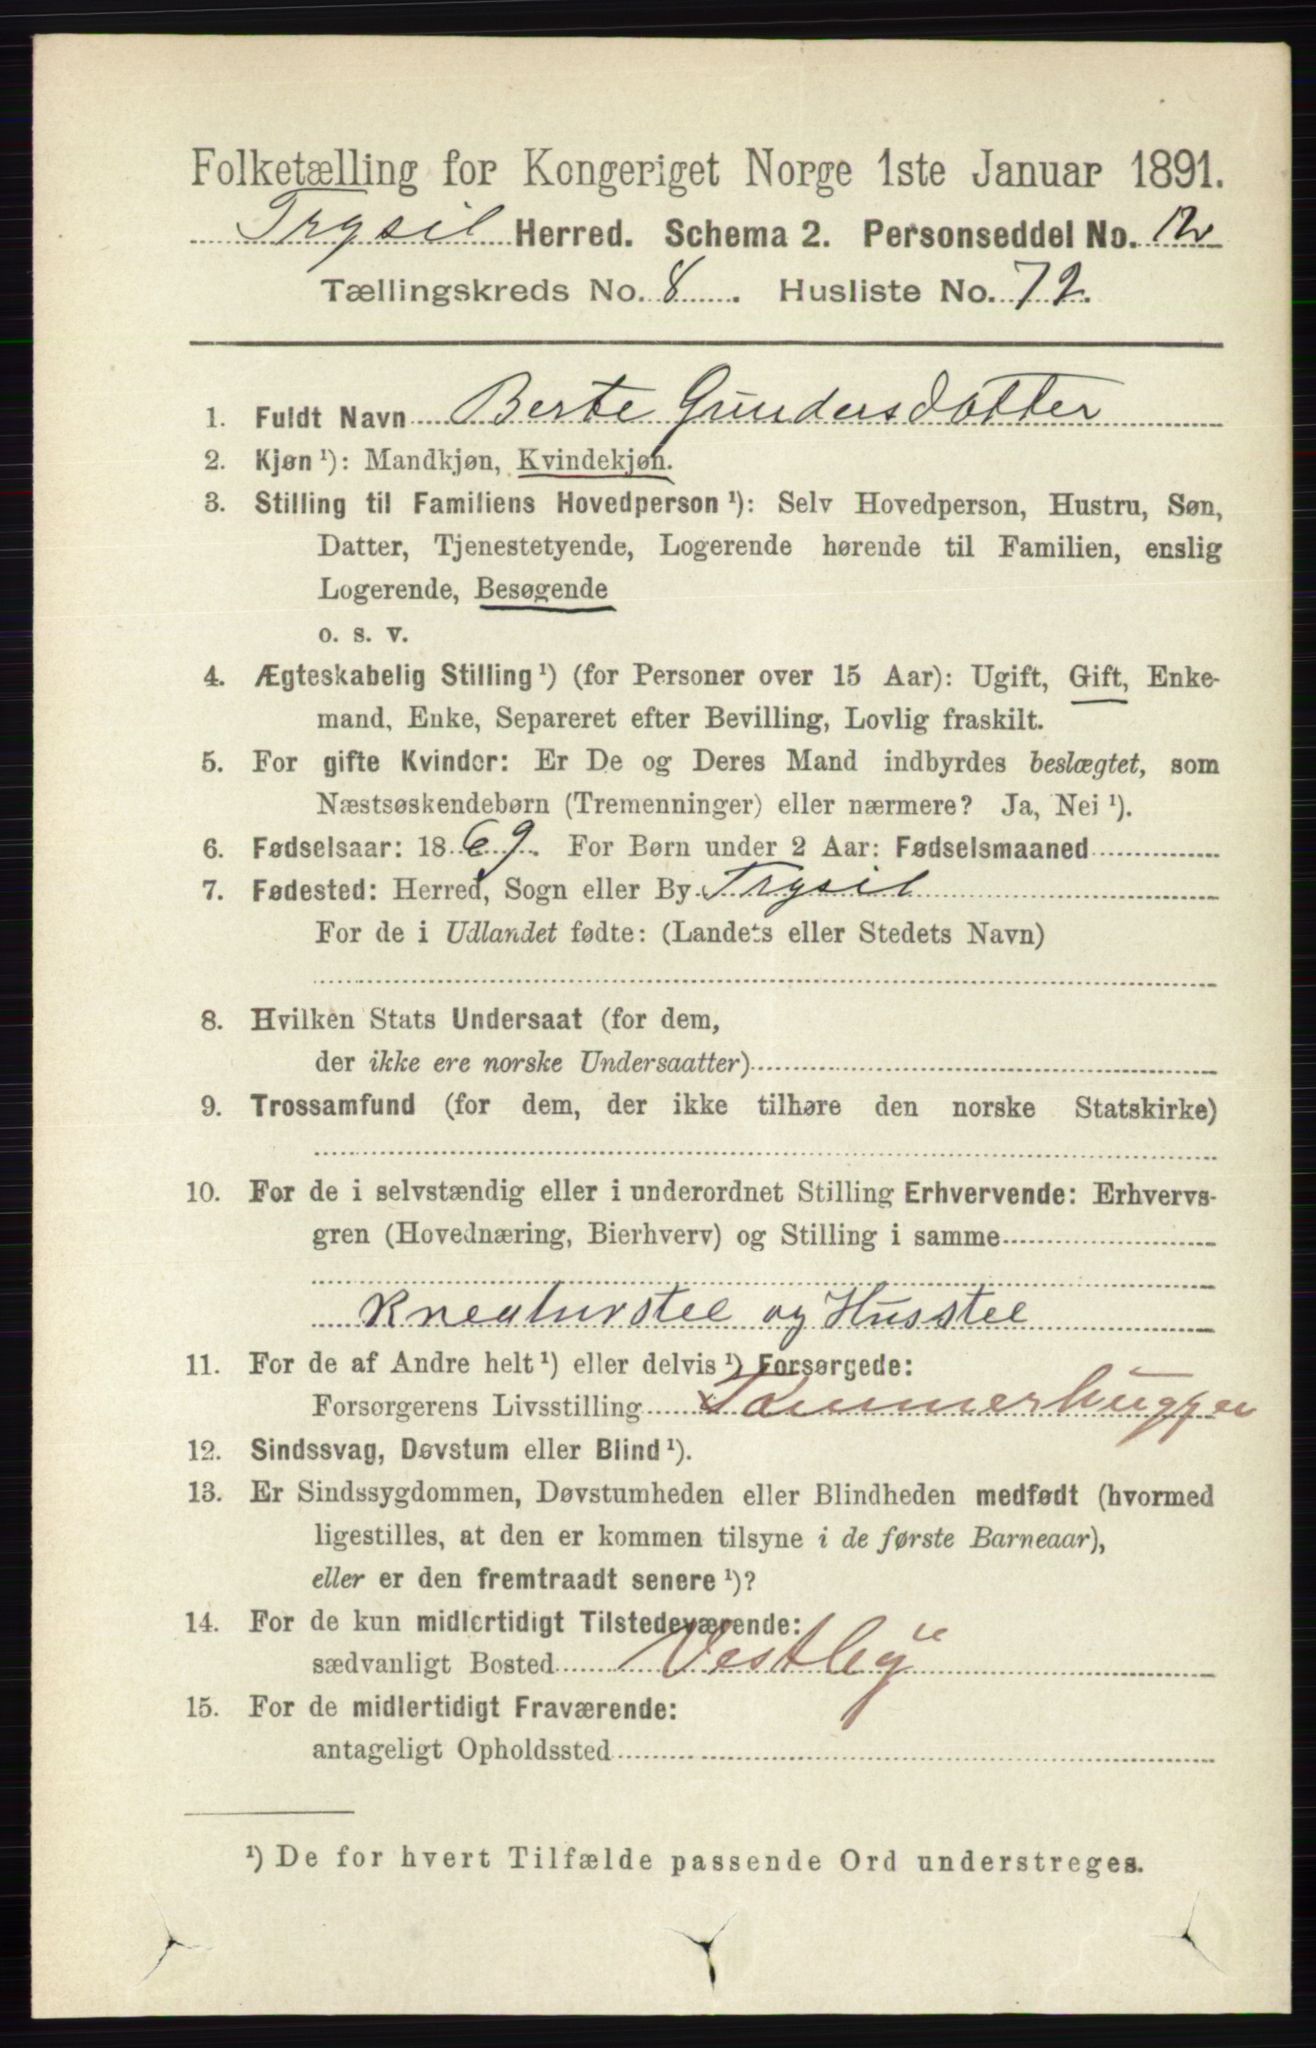 Folketælling for Kongeriget Norge 1ste Januar 1891.
Trysil Herred. Schema 2. Personseddel No. 12
Tællingskreds No. 8. Husliste No. 72.
1. Fuldt Navn Berte Gundersdatter
2. Kjøn ¹): Mandkjøn, Kvindekjøn.
3. Stilling til Familiens Hovedperson ¹): Selv Hovedperson, Hustru, Søn,
Datter, Tjenestetyende, Logerende hørende til Familien, enslig
Logerende, Besøgende
o. s. v.
4. Ægteskabelig Stilling ¹) (for Personer over 15 Aar): Ugift, Gift, Enke-
mand, Enke, Separeret efter Bevilling, Lovlig fraskilt.
5. For gifte Kvinder: Er De og Deres Mand indbyrdes beslægtet, som
Næstsøskendebørn (Tremenninger) eller nærmere? Ja, Nei ¹).
6. Fødselsaar: 1869. For Børn under 2 Aar: Fødselsmaaned
7. Fødested: Herred, Sogn eller By Trysil
For de i Udlandet fødte: (Landets eller Stedets Navn)
8. Hvilken Stats Undersaat (for dem,
der ikke ere norske Undersaatter)
9. Trossamfund (for dem, der ikke tilhøre den norske Statskirke)
10. For de i selvstændig eller i underordnet Stilling Erhvervende: Erhvervs-
gren (Hovednæring, Bierhverv) og Stilling i samme
Kreaturstel og Husstel
11. For de af Andre helt ¹) eller delvis ¹) Forsørgede:
Forsørgerens Livsstilling Tømmerhugger
12. Sindssvag, Døvstum eller Blind ¹).
13. Er Sindssygdommen, Døvstumheden eller Blindheden medfødt (hvormed
ligestilles, at den er kommen tilsyne i de første Barneaar),
eller er den fremtraadt senere ¹)?
14. For de kun midlertidigt Tilstedeværende:
sædvanligt Bosted Vestby
15. For de midlertidigt Fraværende:
antageligt Opholdssted
¹) De for hvert Tilfælde passende Ord understreges.